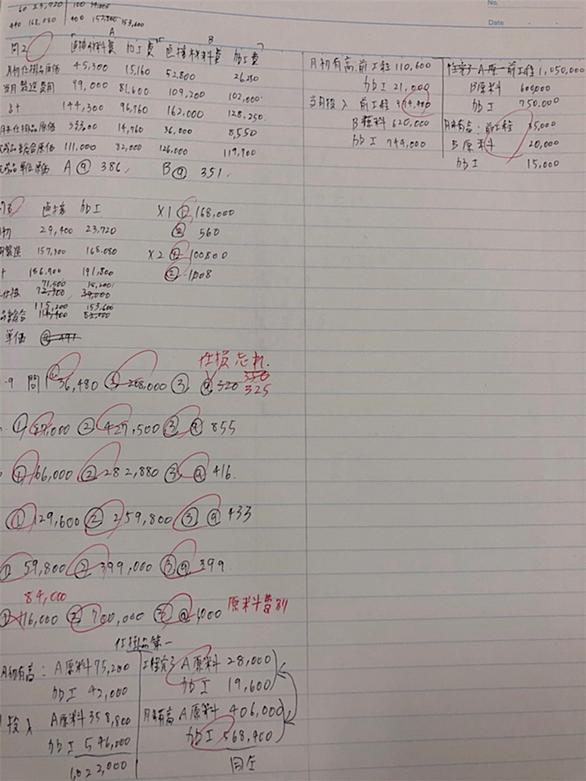 No.
Date
60 23,720 100 39,000
440 168,080 400 157,300 153,600
A B
問2 直接材料費 加工費 直接材料費 加工費
月初仕掛品原価 45,300 15,160 52,800 26,250
当月製造費用 99,000 81,600 109,200 102,000
計 144,300 96,760 162,000 128,250
月末仕掛品原価 33,300 14,760 36,000 8,550
完成品総合原価 111,000 82,000 126,000 119,700
完成品単位原価 A @ 386 B @ 351
月初有高 前工程 110,600
加工 21,000
当月投入 前工程
B原料 620,000
加工 744,000
完了 前工程 1,050,000
B原料 600,000
加工 750,000
月末有高:前工程 35,000
B原料 20,000
加工 15,000
直接 加工
月初 29,400 23,720
製造 157,300 168,080
計 186,900 191,800
71,500 38,200
仕掛 72,900 39,000
115,200 153,600
単価
X1 ① 168,000
② 560
X2 ① 100800
② 1008
仕損忘れ
問1 ① 36,480 ② 208,000 ③ @ 320 325
① 27,000 ② 427,500 ③ @ 855
① 66,000 ② 282,880 ③ @ 416
① 129,600 ② 259,800 ③ @ 433
① 59,800 ② 399,000 ③ @ 399
84,000
① 116,000 ② 700,000 ③ @ 1000 原料費別
仕掛品第一
月初有高:A原料 75,200
加工 42,000
投入 A原料 358,800
加工 546,000
1,022,000
工程完了 A原料 28,000
加工 19,600
月末有高 A原料 406,000
加工 568,400
同左